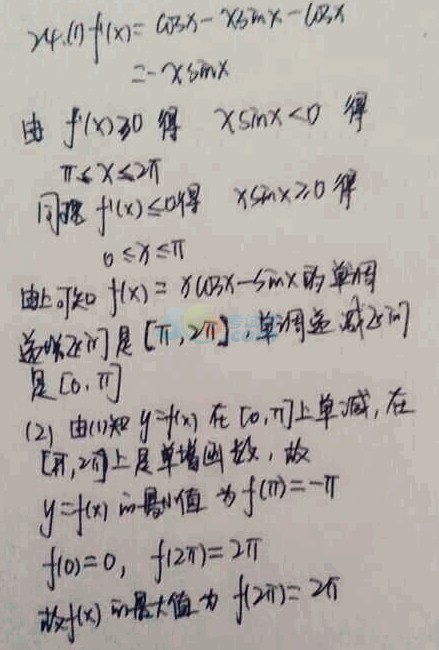 24.(1) f'(x)= cosx-xsinx-cosx
=-xsinx
由 f'(x)≥0 得 xsinx<0 得
π≤x≤2π
同理 f'(x)≤0得 xsinx≥0 得
0≤x≤π
由上可知 f(x)= xcosx-sinx的单调
递增区间是[π,2π],单调递减区间
是[0,π]
(2) 由(1)知 y=f(x) 在[0,π]上单减,在
[π,2π]上是单增函数,故
y=f(x)的最小值为f(π)=-π
f(0)=0, f(2π)=2π
故f(x)的最大值为 f(2π)=2π